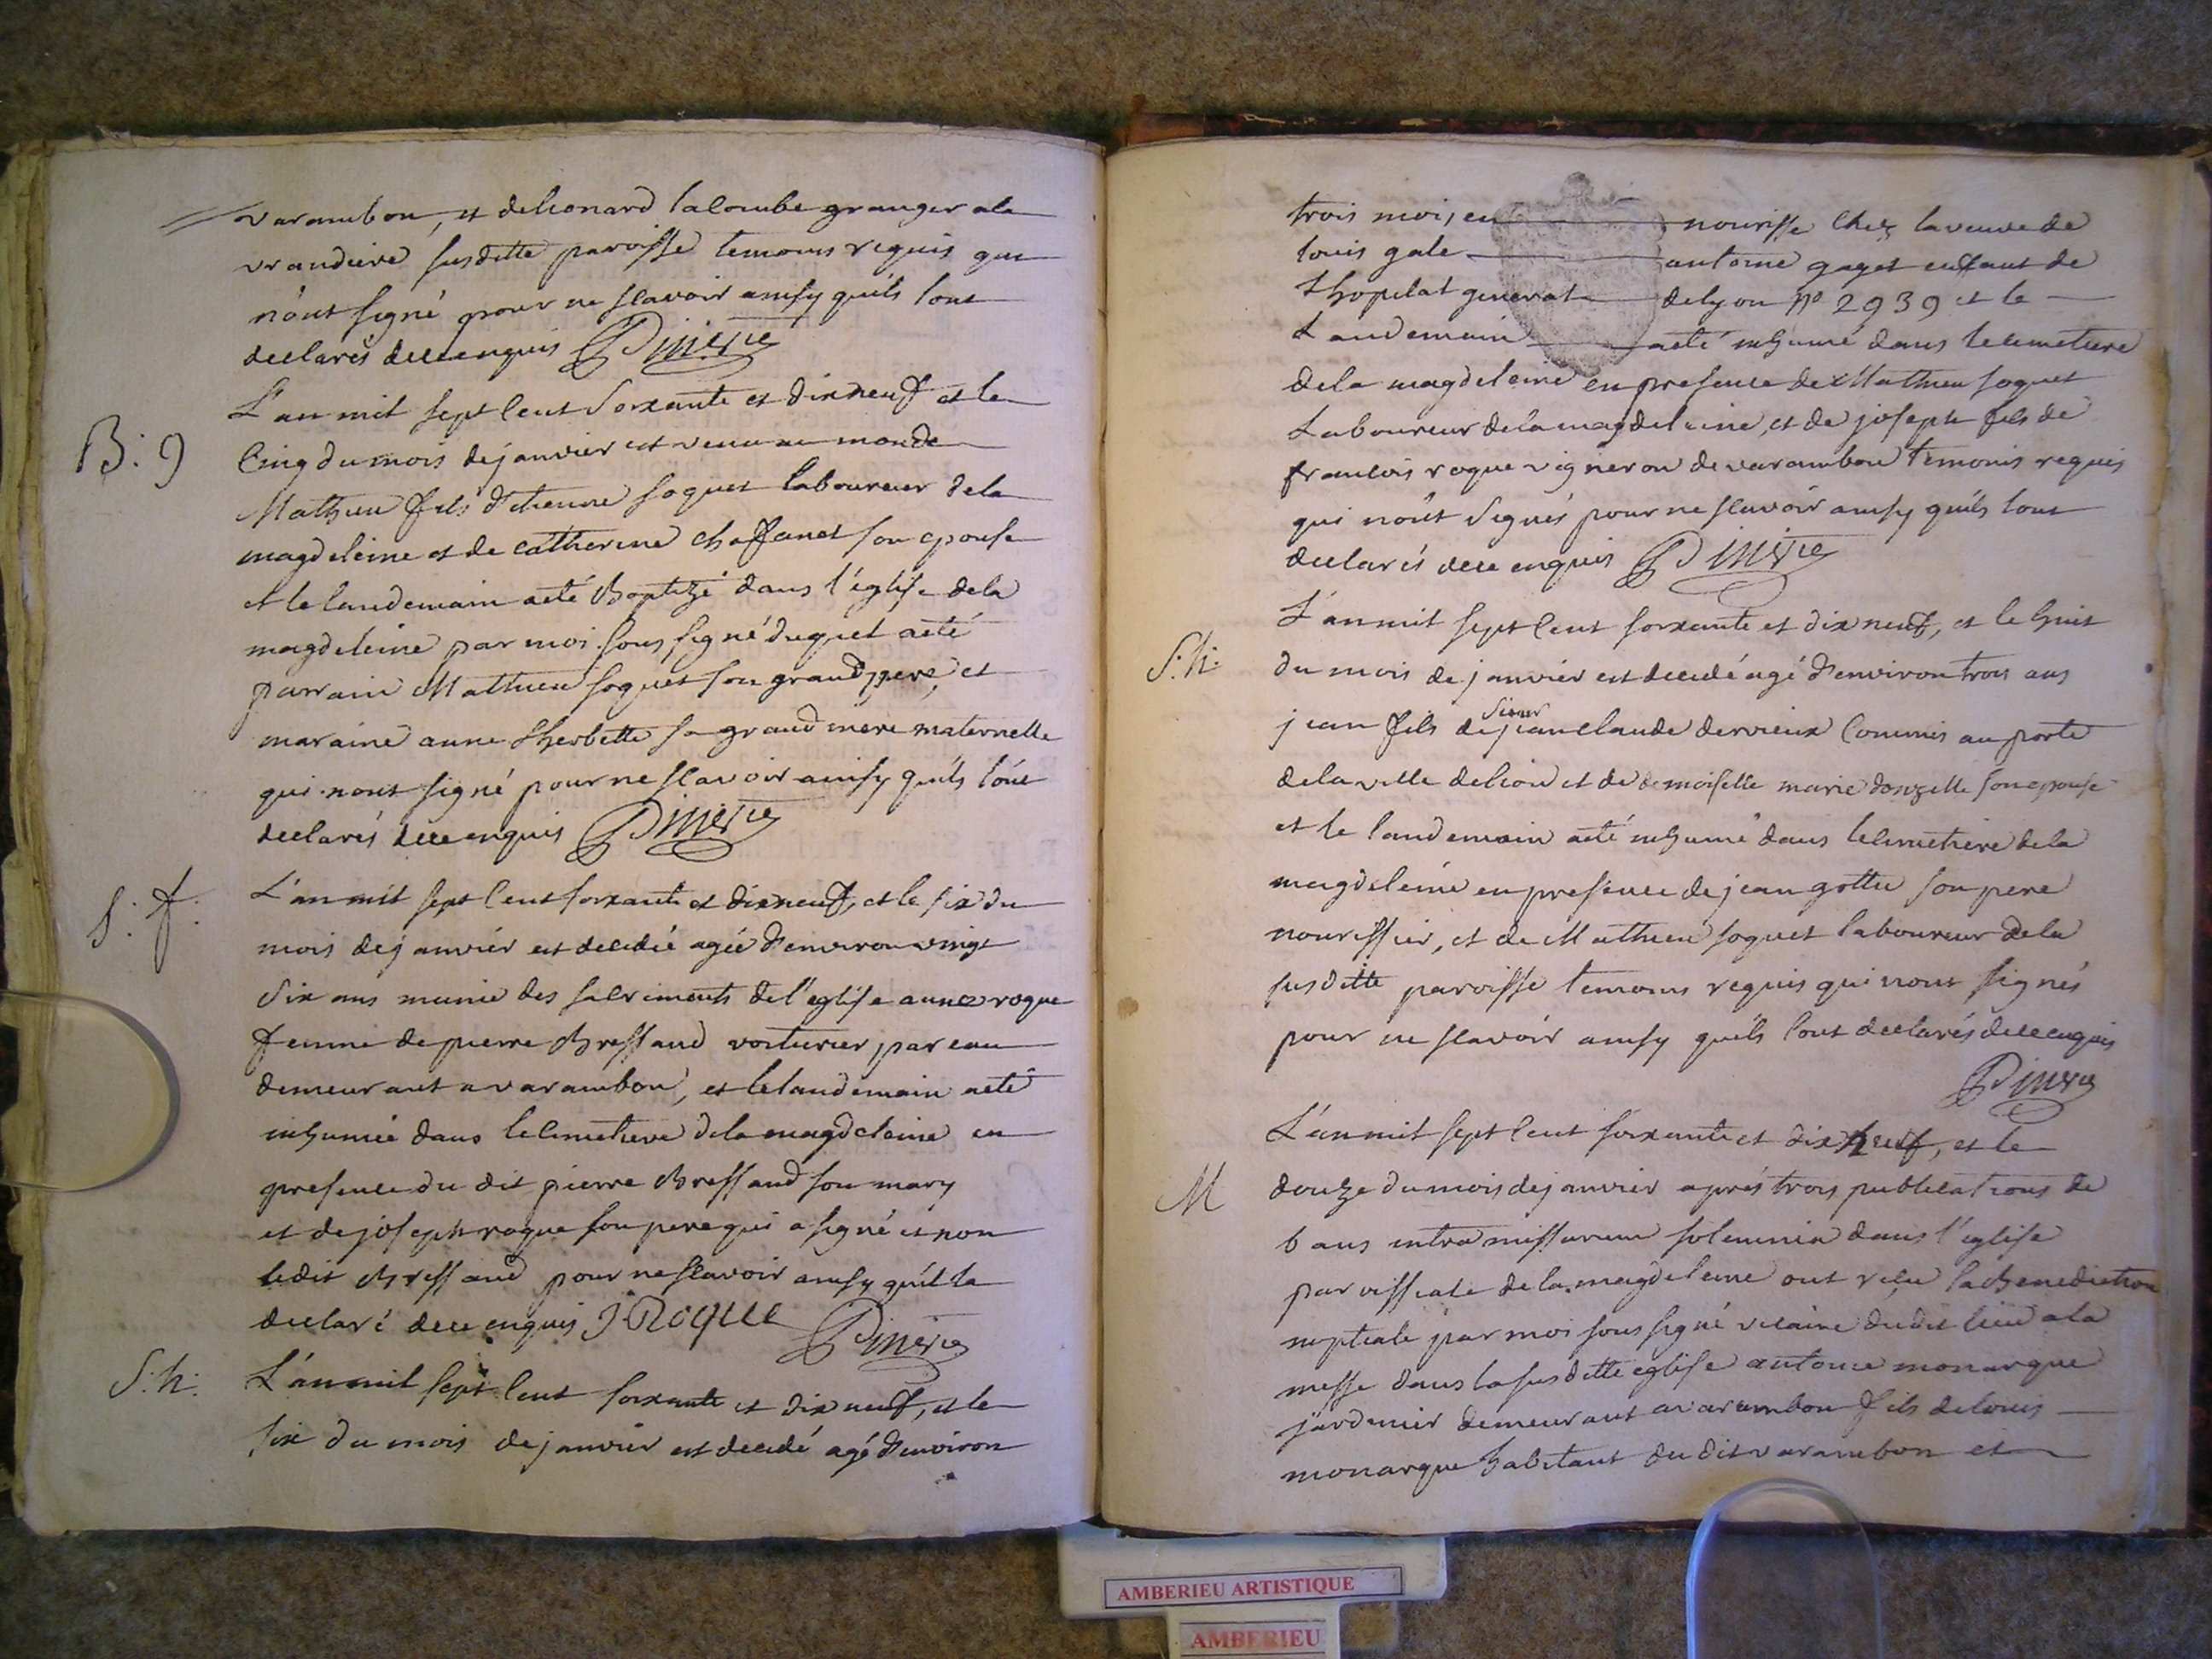 varambon, et de lionard lacombe granger a la
vrandiere susditte paroisse temoins requis qui
n'ont signé pour ne scavoir ainsy qu'ils lont
declarés de ce enquis Dimerie
L'an mil sept cent soixante et dix neuf et le
B: g cinq du mois de janvier est venu au monde
Mathieu fils d'etienne soquet laboureur de la
magdeleine et de catherine chaffanet son epouse
et le landemain a eté Baptizé dans l'église de la
magdeleine par moi sous signé duquel a eté
parrain Mathieu soquet son grand pere, et
maraine anne Sherbette sa grand mere maternelle
qui n'ont signé pour ne scavoir ainsy qu'ils l'ont
declarés de ce enquis Dimerie
S: f: L'an mil sept cent soixante et dix neuf, et le six du
mois de janvier est decedée agée d'environ vingt
six ans munie des sacrements de l'eglise anne roque
femme de pierre Bressand voiturier par eau
demeurant a varambon, et le landemain a eté
inhumée dans le cimetiere de la magdeleine en
presence du dit pierre Bressand son mary
et de joseph roque son pere qui a signé et non
ledit Bressand pour ne scavoir ainsy qu'il la
declaré de ce enquis J Roque Dimerie
S: h: L'an mil sept cent soixante et dix neuf, et le
six du mois de janvier est decedé agé d'environ
trois mois en nourisse chez la veuve de
louis gale antoine gaget enfant de
Lhopital general de lyon no 2939 et le
Landemain a eté inhumé dans le cimetiere
de la magdeleine en presence de Mathieu soquet
Laboureur de la magdeleine, et de joseph fils de
francois roque vigneron de varambon temoins requis
qui n'ont signés pour ne scavoir ainsy qu'ils lont
declarés de ce enquis Dimerie
L'an mil sept cent soixante et dix neuf, et le huit
S: h: du mois de janvier est decedé agé d'environ trois ans
jean fils de sieur jean claude dervieux commis au porte
de la ville de lion et de demoiselle marie donzelle son epouse
et le landemain a eté inhumé dans le cimetiere de la
magdeleine en presence de jean gottu son pere
nourissier, et de Mathieu soquet laboureur de la
susditte paroisse temoins requis qui n'ont signés
pour ne scavoir ainsy qu'ils lont declarés de ce enquis
Dimerie
L'an mil sept cent soixante et dix neuf, et le
M douze du mois de janvier aprés trois publications de
bans intra missarum solemnia dans l'église
paroissiale de la magdeleine ont reçu la benediction
nuptiale par moi sous signé vicaire du dit lieu a la
messe dans la susditte eglise antoine monarque
jardinier demeurant a varambon fils de louis
monarque habitant du dit varambon et
AMBERIEU ARTISTIQUE
AMBERIEU